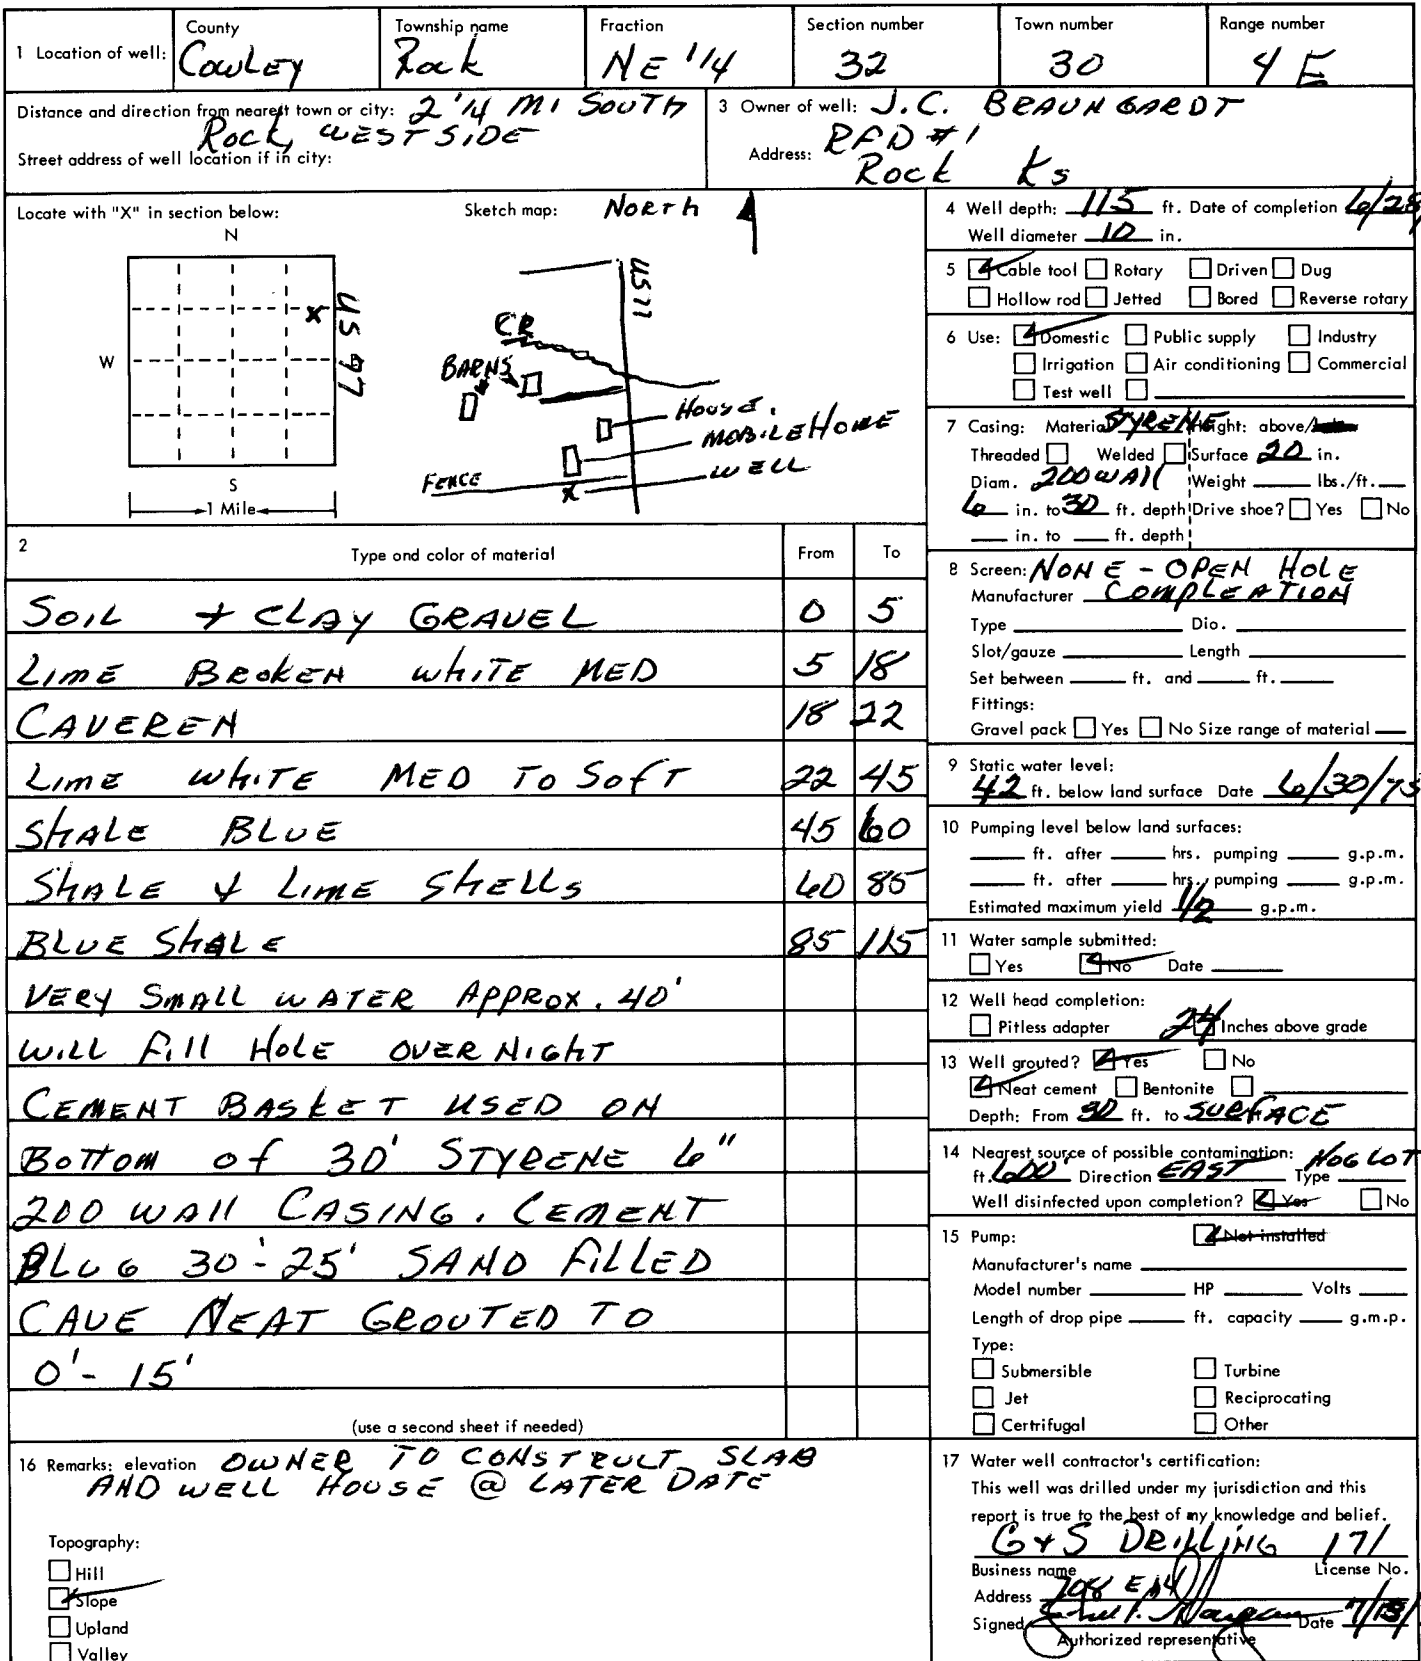 1 Location of well: County Township name Fraction Section number Town number Range number
Cowley Rock NE 1/4 32 30 4 E
Distance and direction from nearest town or city: 2 1/4 MI SOUTH
ROCK, WEST SIDE
Street address of well location if in city:
3 Owner of well: J.C. BRAUNGARDT
Address: RFD #1
Rock Ks
Locate with "X" in section below:
N
W
E
S
X
US 77
1 Mile
Sketch map: NORTH
US 77
CR
BARNS
HOUSE.
MOBILE HOME
WELL
FENCE
X
4 Well depth: 115 ft. Date of completion 6/28/
Well diameter 10 in.
5 Cable tool Rotary Driven Dug
Hollow rod Jetted Bored Reverse rotary
6 Use: Domestic Public supply Industry
Irrigation Air conditioning Commercial
Test well
7 Casing: Material STYRENE Height: above/
Threaded Welded Surface 20 in.
Diam. 200 WALL Weight lbs./ft.
6 in. to 30 ft. depth Drive shoe? Yes No
in. to ft. depth
8 Screen: NONE - OPEN HOLE
Manufacturer COMPLEATION
Type Dia.
Slot/gauze Length
Set between ft. and ft.
Fittings:
Gravel pack Yes No Size range of material
9 Static water level:
42 ft. below land surface Date 6/30/75
10 Pumping level below land surfaces:
ft. after hrs. pumping g.p.m.
ft. after hrs. pumping g.p.m.
Estimated maximum yield 1/2 g.p.m.
11 Water sample submitted:
Yes No Date
12 Well head completion:
Pitless adapter 24 Inches above grade
13 Well grouted? Yes No
Neat cement Bentonite
Depth: From 30 ft. to SURFACE
14 Nearest source of possible contamination:
ft. 600' Direction EAST Type HOG LOT
Well disinfected upon completion? Yes No
15 Pump: Not installed
Manufacturer's name
Model number HP Volts
Length of drop pipe ft. capacity g.m.p.
Type:
Submersible Turbine
Jet Reciprocating
Certrifugal Other
2 Type and color of material From To
SOIL + CLAY GRAVEL 0 5
LIME BROKEN WHITE MED 5 18
CAVEREN 18 22
LIME WHITE MED TO SOFT 22 45
SHALE BLUE 45 60
SHALE & LIME SHELLS 60 85
BLUE SHALE 85 115
VERY SMALL WATER APPROX. 40'
WILL FILL HOLE OVER NIGHT
CEMENT BASKET USED ON
BOTTOM OF 30' STYRENE 6"
200 WALL CASING. CEMENT
PLUG 30'-25' SAND FILLED
CAVE NEAT GROUTED TO
0'-15'
(use a second sheet if needed)
16 Remarks: elevation OWNER TO CONSTRUCT SLAB
AND WELL HOUSE @ LATER DATE
Topography:
Hill
Slope
Upland
Valley
17 Water well contractor's certification:
This well was drilled under my jurisdiction and this
report is true to the best of my knowledge and belief.
G & S DRILLING 171
Business name License No.
Address 708 E
Signed Date 7/18/
Authorized representative